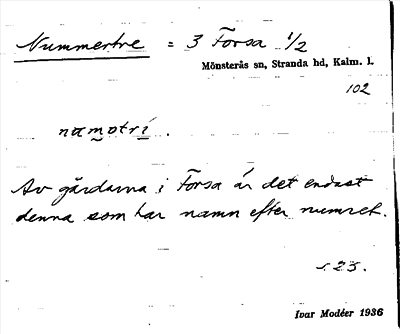 Nummertre = 3 Forsa 1/2
Mönsterås sn, Stranda hd, Kalm. l.
102
namotri.
Av gårdarna i Forsa är det endast
denna som har namn efter numret.
s 23.
Ivar Modéer 1936